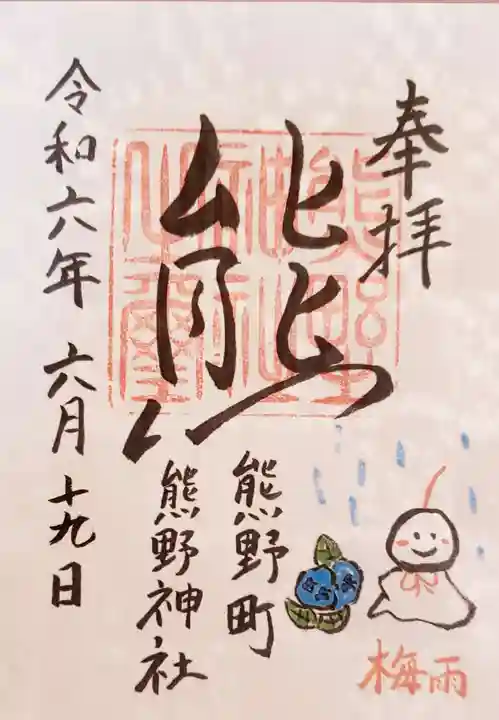 奉拝
熊
熊野町
熊野神社
令和六年六月十九日
梅雨